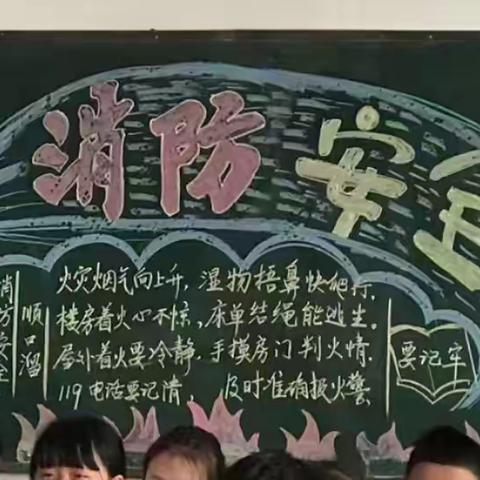 消防安全
消防安全
顺口溜
火灾烟气向上升，湿物捂鼻快爬行。
楼房着火心不惊，床单结绳能逃生。
屋外着火要冷静，手摸房门判火情。
119电话要记清，及时准确报火警
要记牢